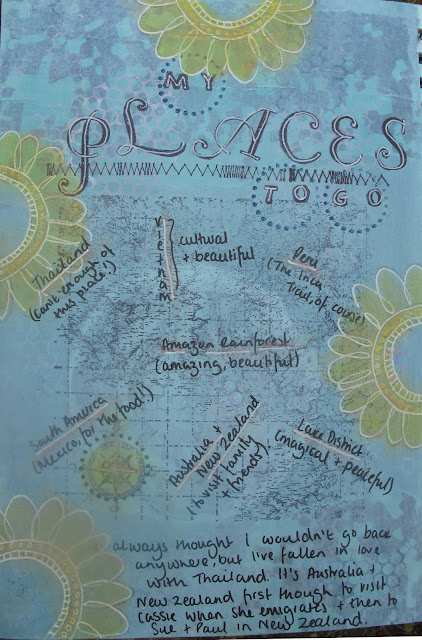 MY
PLACES
TO GO
Vietnam
cultural
+ beautiful
Thailand
(can't enough of
this place!)
Peru
(The Inca
Trail, of course)
Amazon Rainforest
(amazing, beautiful)
South America
(Mexico, for the food!)
Australia +
New Zealand
(to visit family
+ friends)
Lake District
(magical + peaceful)
always thought I wouldn't go back
anywhere, but I've fallen in love
with Thailand. It's Australia +
New Zealand first though to visit
Cassie when she emigrates + then to
Sue + Paul in New Zealand.